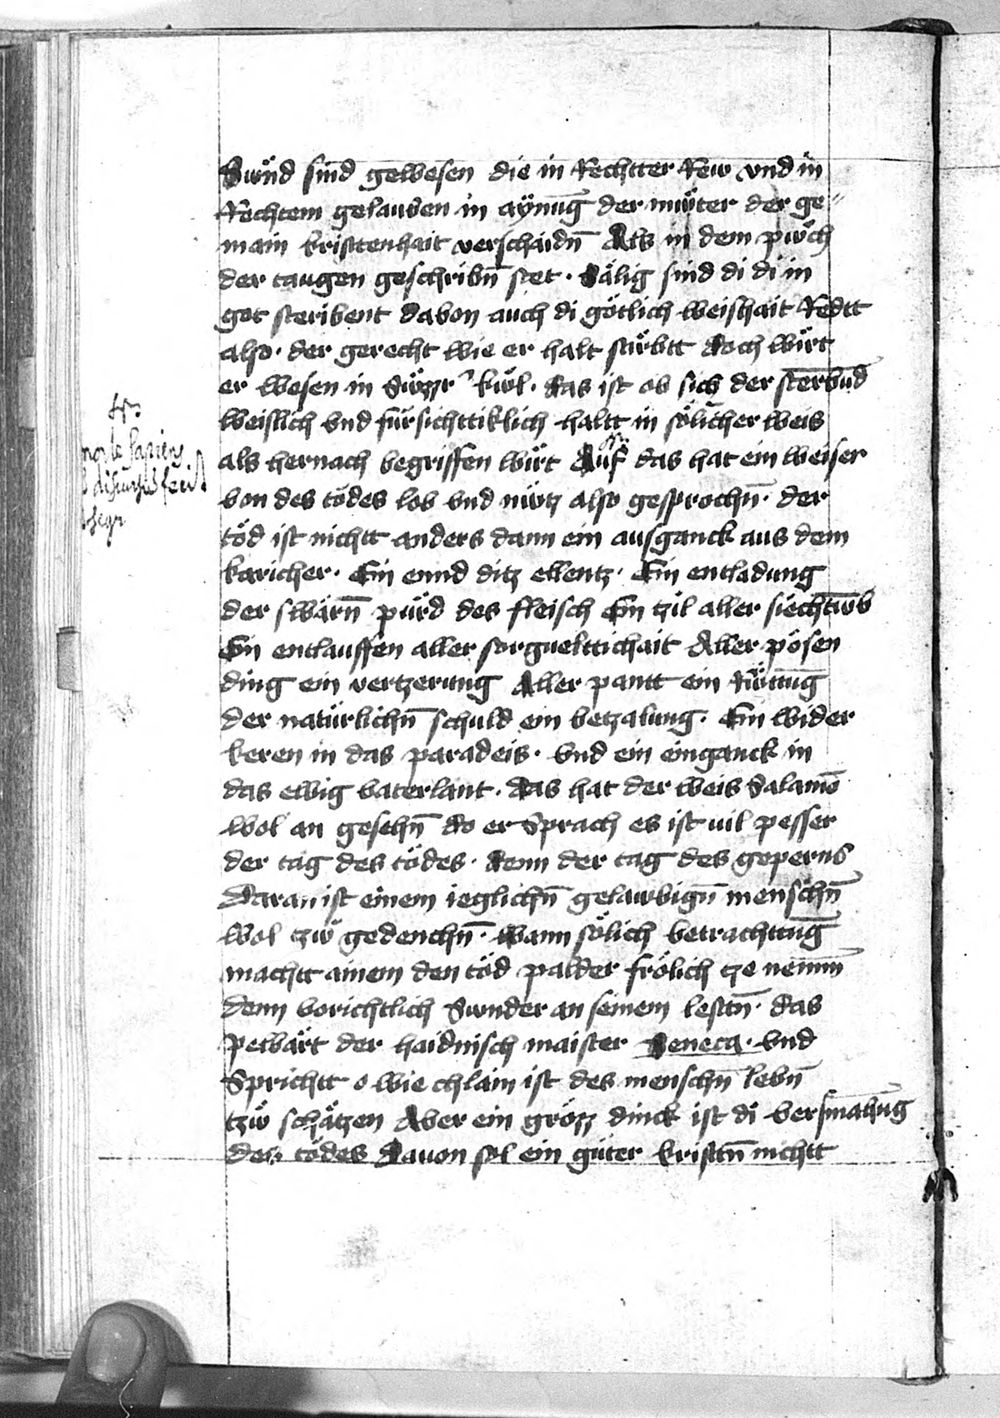 Swnd sind gewesen die in Rechtter Rew vnd in
Rechtem gelauben in aynūg der mwter der ge〃
main kristtenhait verschaidn̄ Als in dem pwch
der taugen geschribn̄ stet · Sälig sind di di in
got steribent dabon auch di götlich weishait Redtt
also · der gerecht wie er halt stirbtt doch wirt
er wesen in kwl · das ist ob sich der sterbūd
weislich vnd fürsichttiklich haltt in sölicher weis
als hernach begriffen wirt Auf das hat ein weiser
von des tödes lob vnd nwtz also gesprochn̄ · der
töd ist nichtt anders dann ein ausganck aus dem
karicher · Ein ennd ditz ellentz · Ein entladung
der swärn̄ pürd des fleisch Ein tzil aller siechtwb
Ein entlauffen aller sorgueltichait Aller pösen
ding ein vertzerung Aller pantt ein
der natürlichn̄ schuld ein betzalung · Ein wider
keren in das paradeis · vnd ein einganck in
das ewig vaterlant · das hat der weis Salamō
wol an gesehn̄ do er Sprach es ist vil pesser
der tag des tödes · denn der tag des geperns
daran ist einem ieglichn̄ gelawbign̄ menschn̄
wol tzw gedenchn̄ · wann sölich betrachttūg
machtt ainem den töd palder frölich tze nemm̄
denn vorichtlich Swnder an seinem lesttn̄ · das
pewärt der haidnisch maister Seneca · vnd
Sprichtt o wie chlain ist des menschn̄ lebn̄
tzw schätzen Aber ein grözz dinck ist di versmahūg
des tödes dauon sol ein güter kristtn̄ nichtt